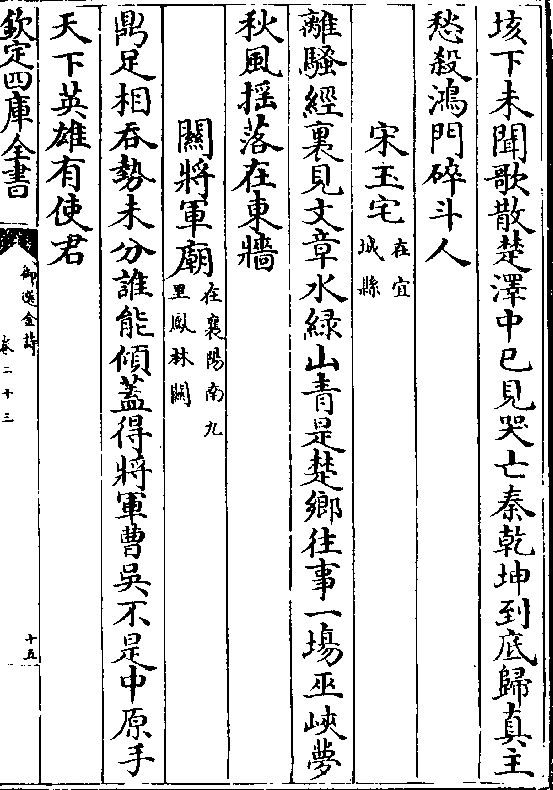 垓下未聞歌散楚澤中已見哭亡秦乾坤到底歸真主
愁殺鴻門碎斗人
宋玉宅在宜城縣
離騷經裏見文章水緑山青是楚鄉往事一場巫峽夢
秋風揺落在東牆
關將軍廟在襄陽南九里鳳林關
鼎足相吞勢未分誰能傾蓋得將軍曹吳不是中原手
天下英雄有使君
欽定四庫全書
御選金詩
卷二十三
十五